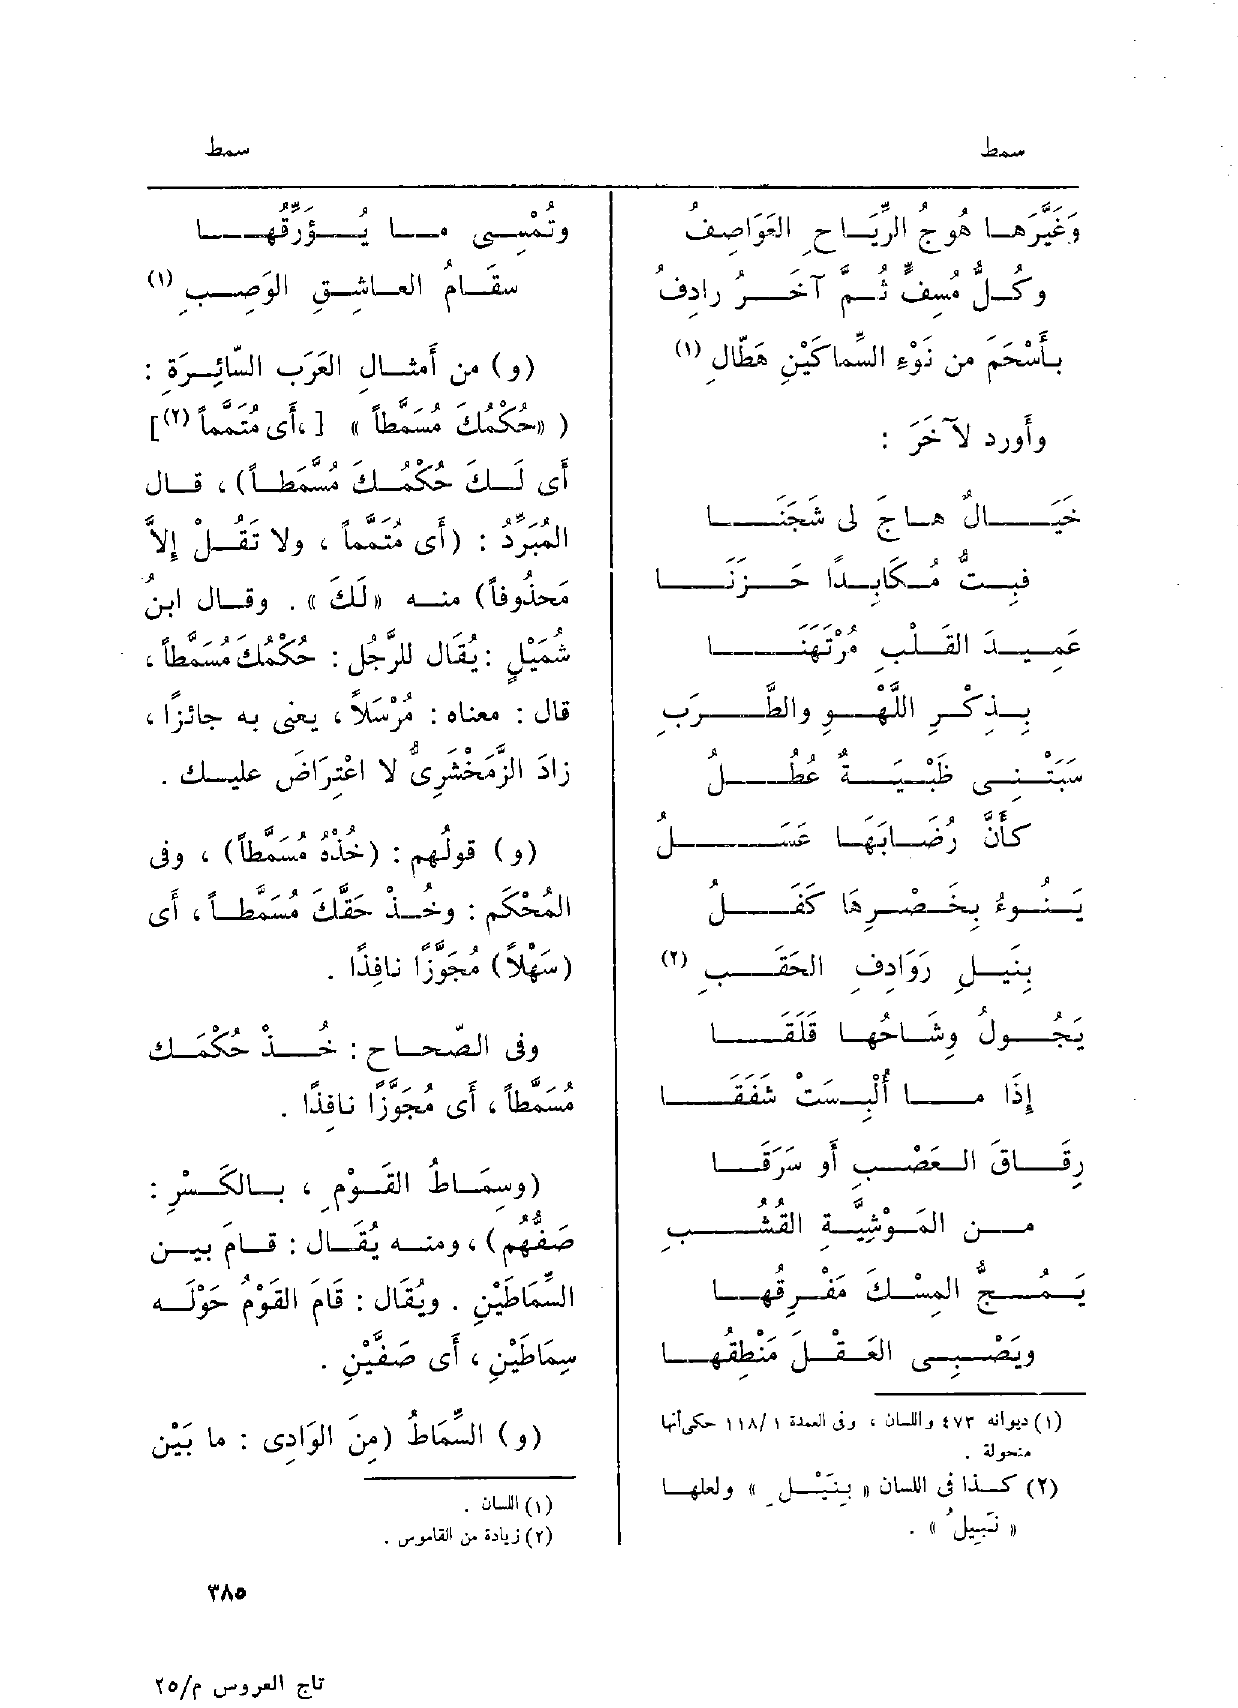 سمط
سمط
وَغَيَّرَها هُوجُ الرِّيَاحِ العَوَاصِفُ
وكُلُّ مُسِفٍّ ثُمَّ آخَرُ رادِفُ
بأَسْحَمَ من نَوْءِ السِّماكَيْنِ هَطَّالِ (١)
وأَورد لآخَرَ :
خَيَالٌ هاجَ لى شَجَنَا
فبِتُّ مُكَابِدًا حَزَنَا
عَمِيدَ القَلْبِ مُرْتَهَنَا
بذِكْرِ اللَّهْوِ والطَّرَبِ
سَبَتْنِى ظَبْيَةٌ عُطُلُ
كأَنَّ رُضَابَهَا عَسَلُ
يَنُوءُ بِخَصْرِهَا كَفَلُ
بِنَيلِ رَوَادِفِ الحَقَبِ (٢)
يَجُولُ وِشَاحُهَا قَلَقَا
إِذَا ما أُلْبِسَتْ شَفَقَا
رِقَاقَ العَصْبِ أَو سَرَقَا
من المَوْشِيَّةِ القُشُبِ
يَمُجُّ المِسْكَ مَفْرِقُها
ويَصْبِى العَقْلَ مَنْطِقُها
(١) ديوانه ٤٧٣ واللسان ، وفى العمدة ١ / ١١٨ حكى أنها
منحولة .
(٢) كذا فى اللسان « بِنَيْلِ » ولعلها
« نَبِيلُ » .
وتُمْسِى ما يُؤَرِّقُها
سقَامُ العاشِقِ الوَصِبِ (١)
(و) من أَمثالِ العَرَبِ السّائِرَةِ :
( «حُكْمُكَ مُسَمَّطاً » [ ،أَى مُتَمَّماً (٢)]
أَى لَكَ حُكْمُكَ مُسَّمَطاً) ، قال
المُبَرِّدُ : (أَى مُتَمَّماً ، ولا تَقُلْ إِلاَّ
مَحذُوفاً) منه «لَكَ» . وقال ابنُ
شُمَيْلٍ : يُقَال للرَّجُلِ : حُكْمُكَ مُسَمَّطاً ،
قال : معناه : مُرْسَلاً ، يعنى به جائزًا ،
زادَ الزَّمَخْشَرِىُّ لا اعْتِرَاضَ عليك .
(و) قولُهم : (خُذْهُ مُسَمَّطاً) ، وفى
المُحْكَم : وخُذْ حَقَّكَ مُسَمَّطاً ، أَى
(سَهْلاً) مُجَوَّزًا نافِذًا .
وفى الصّحاح : خُذْ حُكْمَك
مُسَمَّطاً ، أَى مُجَوَّزًا نافِذًا .
(وسِمَاطُ القَوْمِ ، بالكَسْرِ :
صَفُّهُم) ، ومنه يُقَال : قامَ بين
السِّمَاطَيْنِ . ويُقَال : قَامَ القَوْمُ حَوْلَه
سِمَاطَيْنِ ، أَى صَفَّيْنِ .
(و) السِّمَاطُ (مِنَ الوَادِى : ما بَيْن
(١) اللسان .
(٢) زيادة من القاموس .
٣٨٥
تاج العروس م/٢٥